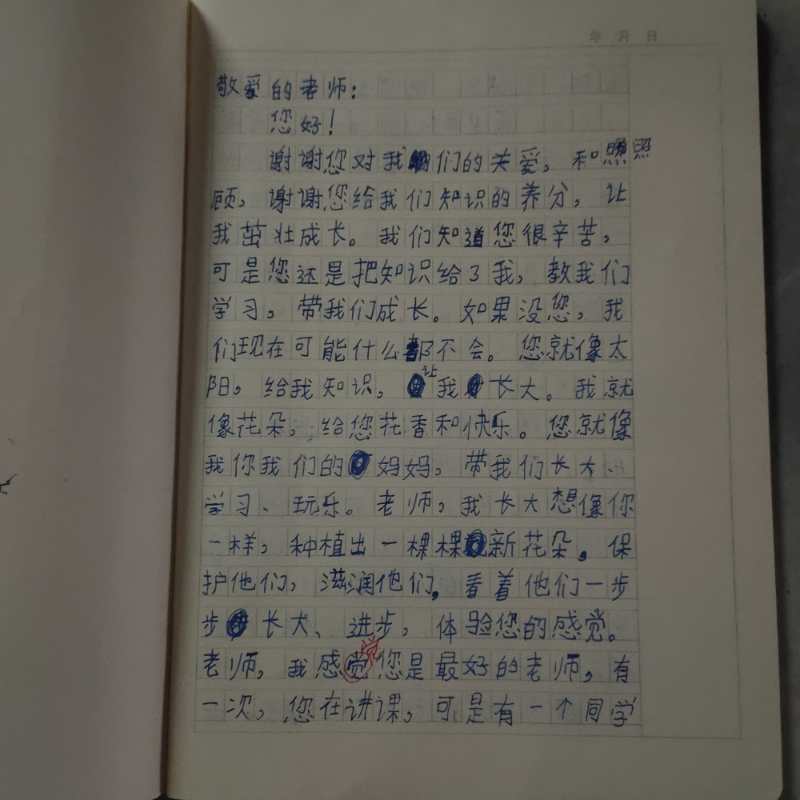 年 月 日
敬爱的老师：
您好！
谢谢您对我们的关爱，和照
顾，谢谢您给我们知识的养分，让
我茁壮成长。我们知道您很辛苦，
可是您还是把知识给了我，教我们
学习，带我们成长。如果没您，我
们现在可能什么都不会。您就像太
阳，给我知识，让我长大。我就
像花朵，给您花香和快乐。您就像
我你我们的妈妈，带我们长大、
学习、玩乐。老师，我长大想像你
一样，种植出一棵棵新花朵。保
护他们，滋润他们。看着他们一步
步长大、进步，体验您的感觉。
老师，我感觉您是最好的老师，有
一次，您在讲课，可是有一个同学